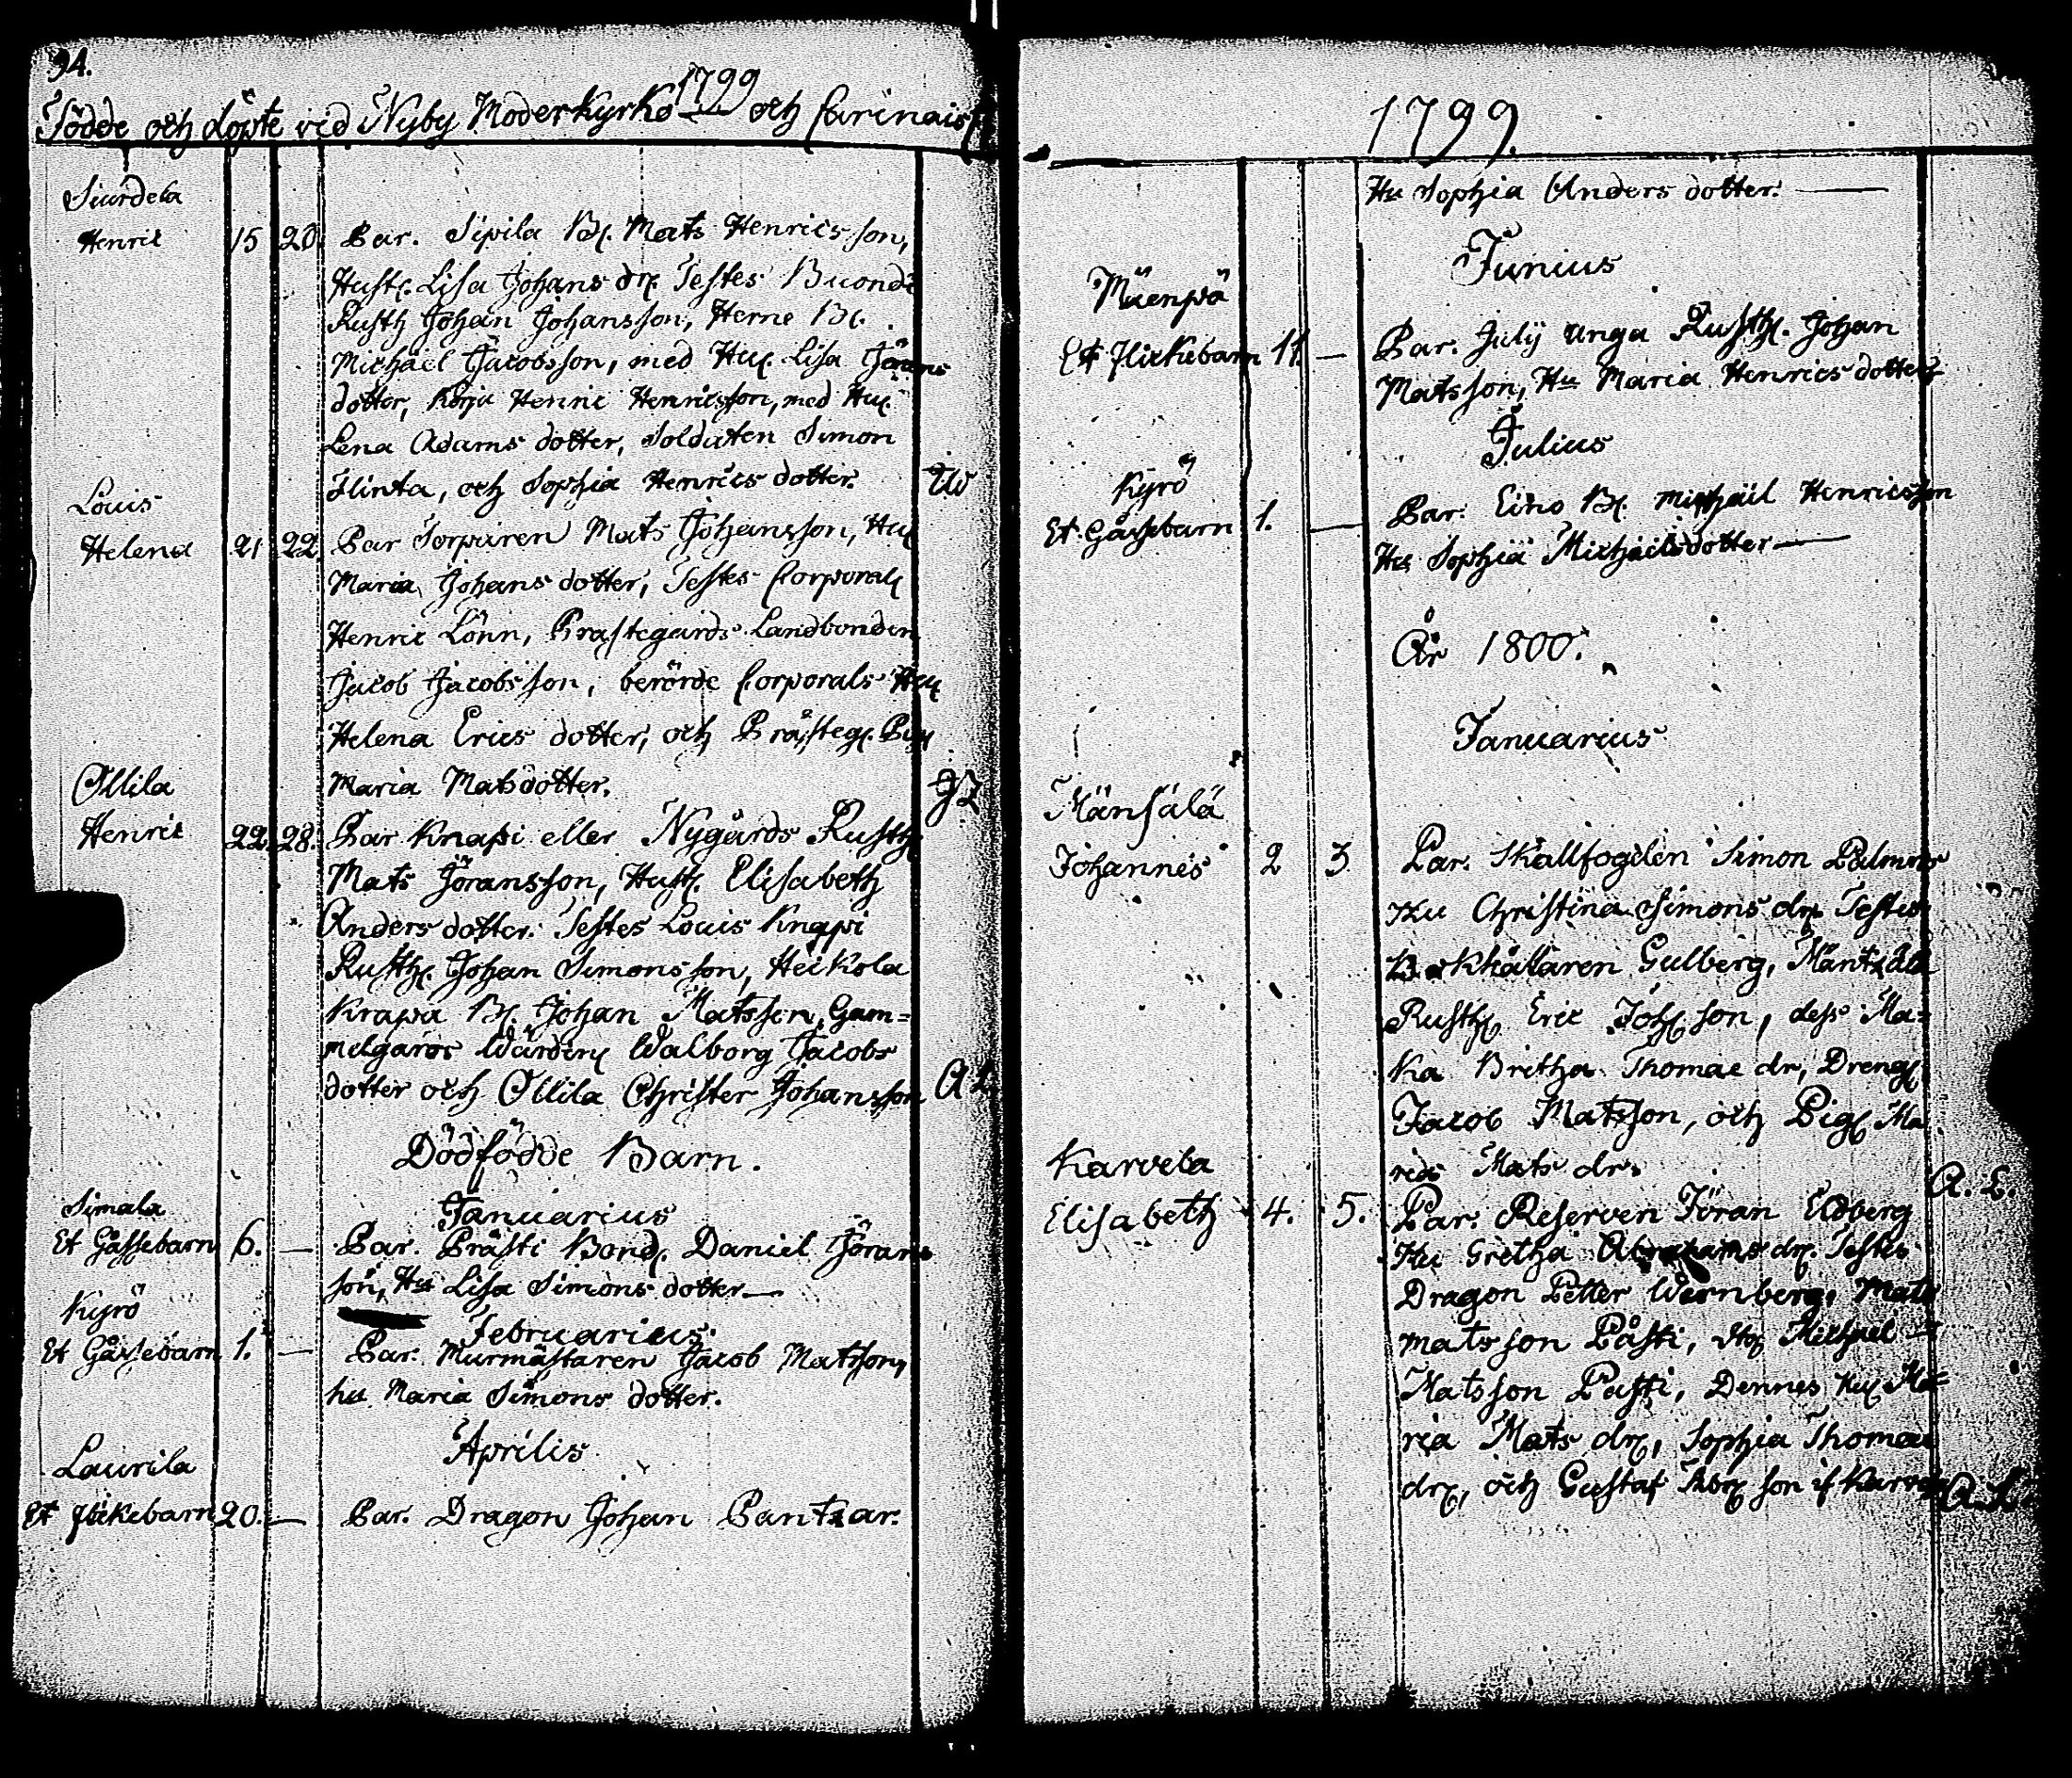 94.
1799
Födde och döpte vid Nyby Moderkyrko och Carinais
Siurdela
Henric 15 20. Par. Sipila B. Mats Henricsson,
Hust. Lisa Johans dr. Testes Buondi
Rusth Johan Johansson, Herne B.
Michael Jacobsson, med Hu. Lisa Jörans
dotter, Korju Henric Henricsson, med Hu.
Lena Adams dotter, Soldaten Simon
Flinta, och Sophia Henrics dotter. Uw
Louis
Helena 21 22 Par Torparen Mats Johansson, Hu.
Maria Johans dotter, Testes Corporal
Henric Lönn, Prästegårds Landbonden
Jacob Jacobsson, berörde Corporals Hu.
Helena Erics dotter, och Prästeg. Pig.
Maria Matsdotter.
Ollila
Henric 22. 28. Par Knapi eller Nygårds Rusth.
Mats Jöransson, Hust. Elisabeth
Anders dotter. Testes Louis Knapi
Rusth. Johan Simonsson, Heikola
Krapa B. Johan Matsson, Gam=
melgårds Wärdin Walborg Jacobs
dotter och Ollila Christer Johansson A L
Dödfödde Barn.
Januarius
Simala
Et Gåssebarn 6. — Par. Prästi Bond. Daniel Jörans
son, Hu Lisa Simons dotter —
Februarius.
Kyrö
Et Gåssebarn 1. — Par. Murmästaren Jacob Matsson,
hu Maria Simons dotter.
Aprilis
Laurila
Et flickebarn 20. — Par. Dragon Johan Pantzar.
1799.
Hu Sophia Anders dotter. —
Junius
Mäenpä
Et Flickebarn 11. — Par. July unga Rusth. Johan
Matsson, Hu Maria Henrics dotter
Julius
Kyrö
Et Gåssebarn 1. — Par. Eino B. Michäil Henricsson
Hu Sophia Michaels dotter —
År 1800.
Januarius
Mänsälä
Johannes 2 3. Par. Skallfogden Simon Palmros
Hu Christina Simons dr. Testes
Bokhållaren Gulberg, Mäntzälä
Rusth Eric Joh. son, dess Ma=
ka Britha Thomae dr, Dreng
Jacob Matsson, och Pig. Ma
ria Mats dr. A. L.
Karvela
Elisabeth 4. 5. Par. Reserven Jöran Edberg
Hu Gretha Abrahams dr. Testes
Dragon Petter Wernberg, Mats
Matsson Påsti, Michael
Matsson Pasti, Dennes Hu Ma=
ria Mats dr., Sophia Thomae
dr., och Gustaf son if Karvela A. L.